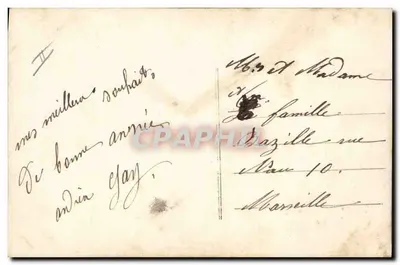 II
mes meilleurs souhaits
De bonne année
Gay.
Mr et Madame
famille
Bazille rue
Nau 10.
Marseille
CPARAMA